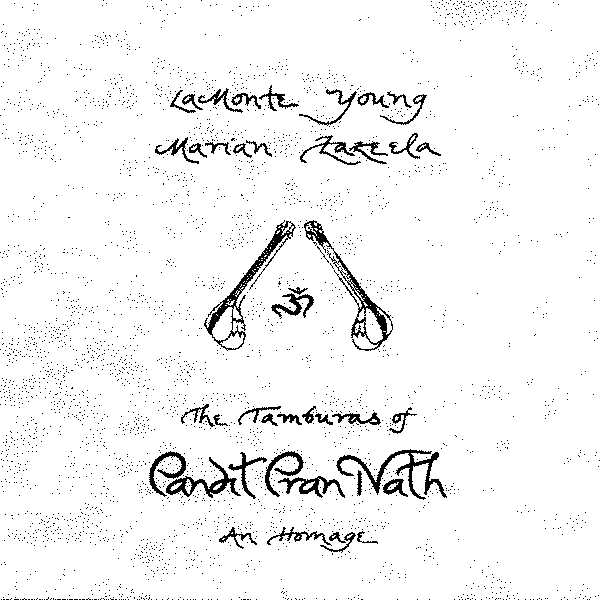 LaMonte Young
Marian Zazeela
ॐ
The Tamburas of
Pandit Pran Nath
An Homage